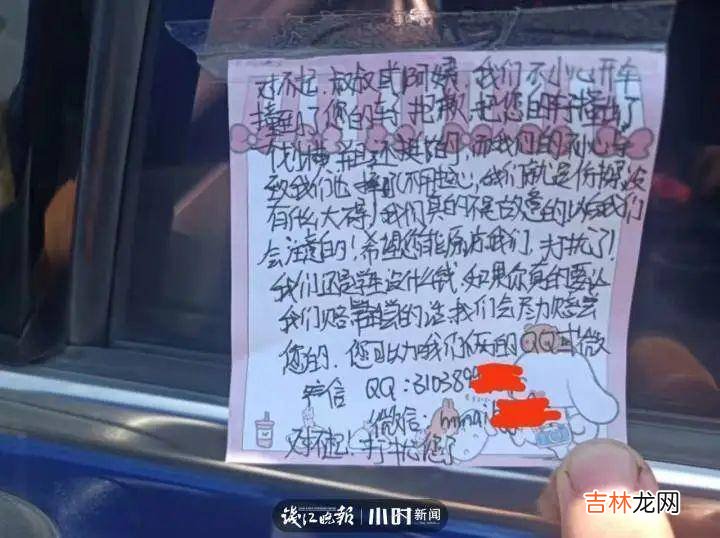 对不起,叔叔或阿姨,我们不小心开车
撞到了您的车子,抱歉,把您的车子撞出了
我们也摔 不用担心,我们就是
有什么大碍!我们真的不是故意的以后我们
会注意的!希望您能原谅我们,打扰了!
我们还是学生没什么钱,如果你真的要让
我们赔 尝的话,我们会尽力赔尝
您的,您可以加我们 的QQ或微
信 QQ:310389
微信:
对不起!打扰您了
钱江晚报 小时新闻
吉林龙网